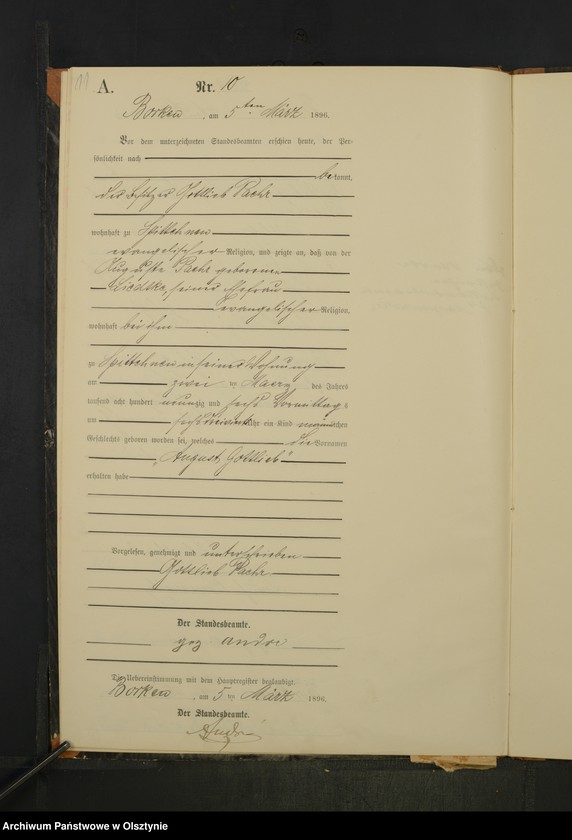 A.
Nr. 10
Borken, am 5ten März 1896.
Vor dem unterzeichneten Standesbeamten erschien heute, der Per-
sönlichkeit nach
bekannt,
der Besitzer Gottlieb
wohnhaft zu
evangelischer Religion, und zeigte an, daß von der
Auguste geborenen
seiner Ehefrau
evangelischer Religion,
wohnhaft bei ihm
zu in seiner Wohnung
am zwei ten Maerz des Jahres
tausend acht hundert neunzig und sechs Vormittags
um Uhr ein Kind männlichen
Geschlechts geboren worden sei, welches die Vornamen
„August, Gottlieb“
erhalten habe
Vorgelesen, genehmigt und unterschrieben
Gottlieb
Der Standesbeamte.
gez Andre
Die Uebereinstimmung mit dem Hauptregister beglaubigt.
Borken, am 5ten März 1896.
Der Standesbeamte.
Archiwum Państwowe w Olsztynie